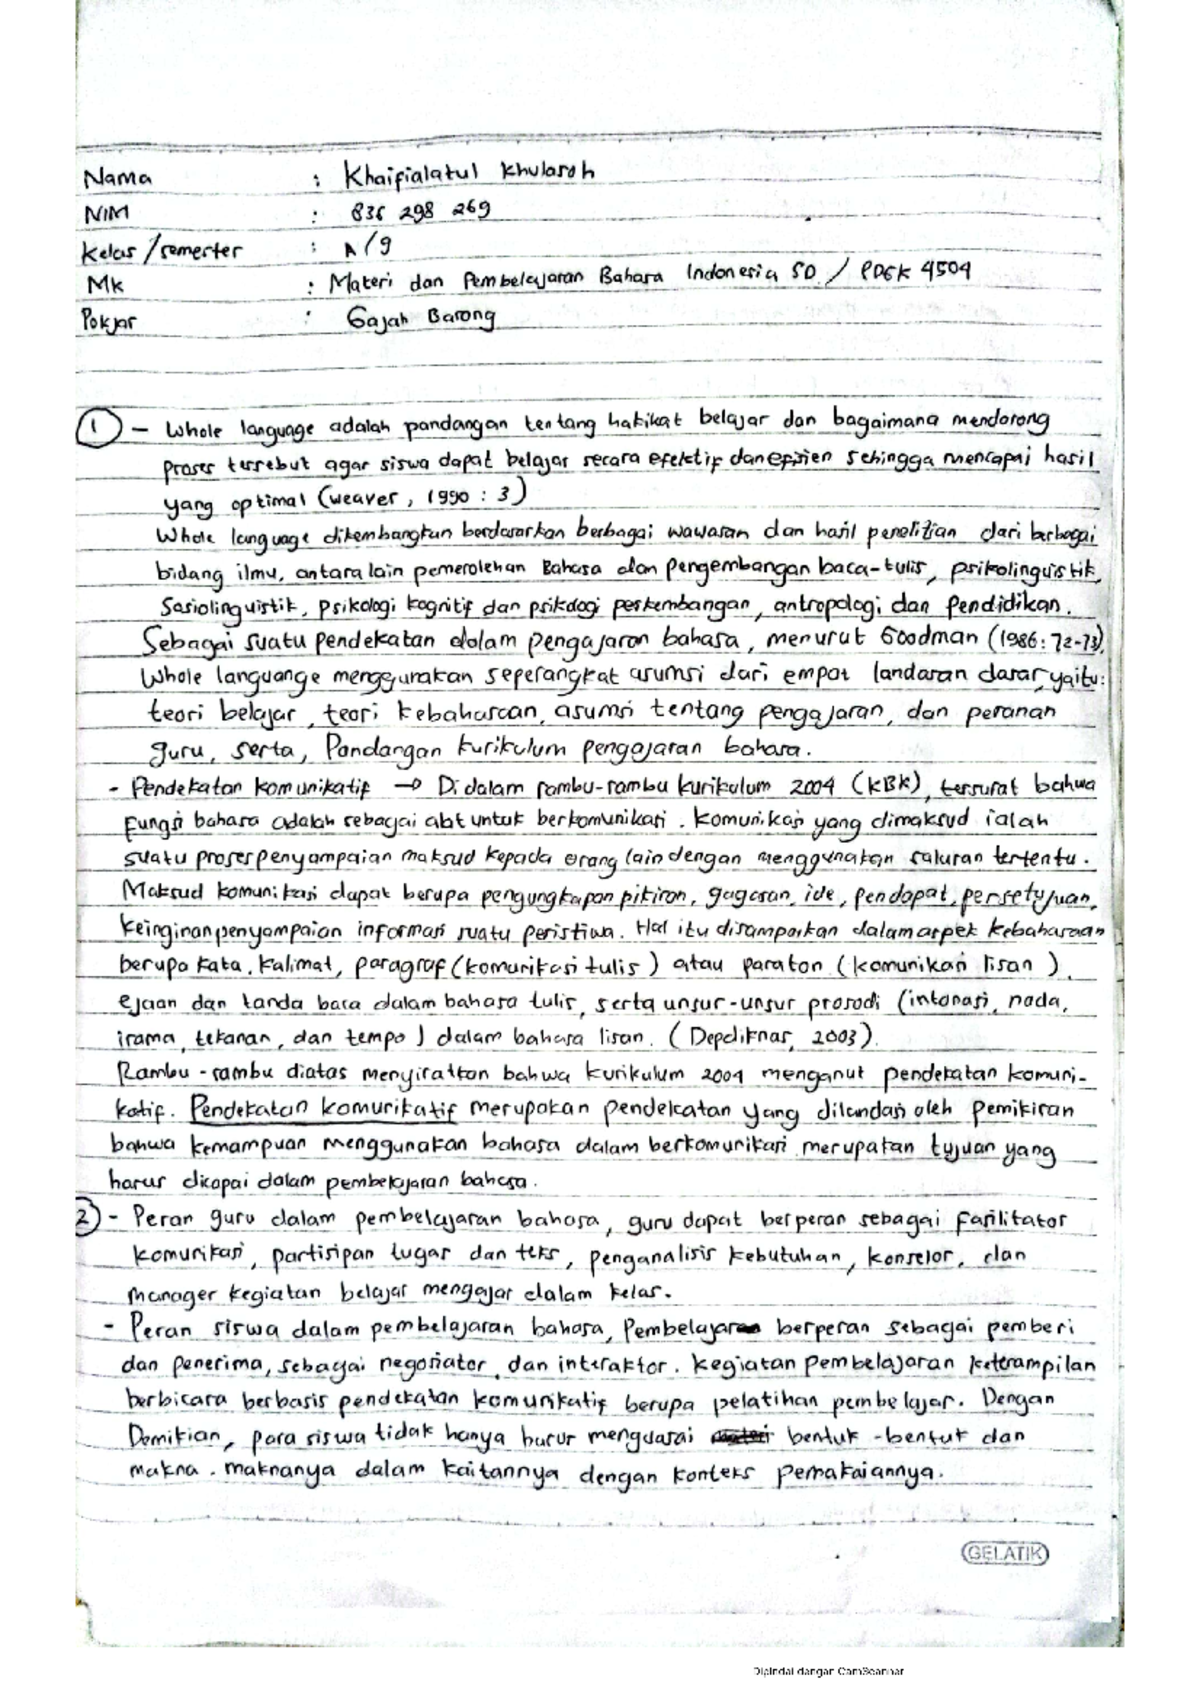 Nama : Khaifialatul Khulasoh
NIM : 836 298 269
Kelas/semester : A/9
Mk : Materi dan Pembelajaran Bahasa Indonesia SD / PDGK 4504
Pokjar : Gajah Barong
1 - Whole language adalah pandangan tentang hakikat belajar dan bagaimana mendorong
proses tersebut agar siswa dapat belajar secara efektif dan efisien sehingga mencapai hasil
yang optimal (weaver, 1990 : 3)
Whole language dikembangkan berdasarkan berbagai wawasan dan hasil penelitian dari berbagai
bidang ilmu, antara lain pemerolehan Bahasa dan pengembangan baca-tulis, psikolinguistik,
Sosiolinguistik, psikologi kognitif dan psikologi perkembangan, antropologi dan Pendidikan.
Sebagai suatu pendekatan dalam pengajaran bahasa, menurut Goodman (1986: 72-73),
Whole languange menggunakan seperangkat asumsi dari empat landasan dasar, yaitu:
teori belajar, teori kebahasaan, asumsi tentang pengajaran, dan peranan
guru, serta, Pandangan kurikulum pengajaran bahasa.
- Pendekatan komunikatif → Didalam rambu-rambu kurikulum 2004 (KBK), tersurat bahwa
fungsi bahasa adalah sebagai alat untuk berkomunikasi. Komunikasi yang dimaksud ialah
suatu proses penyampaian maksud kepada orang lain dengan menggunakan saluran tertentu.
Maksud komunikasi dapat berupa pengungkapan pikiran, gagasan, ide, pendapat, persetujuan,
keinginan penyampaian informasi suatu peristiwa. Hal itu disampaikan dalam aspek kebahasaan
berupa kata, kalimat, paragraf (komunikasi tulis) atau paraton (komunikasi lisan),
ejaan dan tanda baca dalam bahasa tulis, serta unsur-unsur prosodi (intonasi, nada,
irama, tekanan, dan tempo) dalam bahasa lisan. (Depdiknas, 2003).
Rambu-rambu diatas menyiratkan bahwa kurikulum 2004 menganut pendekatan komuni-
katif. Pendekatan komunikatif merupakan pendekatan yang dilandasi oleh pemikiran
bahwa kemampuan menggunakan bahasa dalam berkomunikasi merupakan tujuan yang
harus dicapai dalam pembelajaran bahasa.
2 - Peran guru dalam pembelajaran bahasa, guru dapat berperan sebagai fasilitator
komunikasi, partisipan tugas dan teks, penganalisis kebutuhan, konselor, dan
manager kegiatan belajar mengajar dalam kelas.
- Peran siswa dalam pembelajaran bahasa, Pembelajar berperan sebagai pemberi
dan penerima, sebagai negosiator, dan interaktor. Kegiatan pembelajaran keterampilan
berbicara berbasis pendekatan komunikatif berupa pelatihan pembelajar. Dengan
Demikian, para siswa tidak hanya harus menguasai bentuk-bentuk dan
makna. maknanya dalam kaitannya dengan konteks pemakaiannya.
GELATIK
Dipindai dengan CamScanner